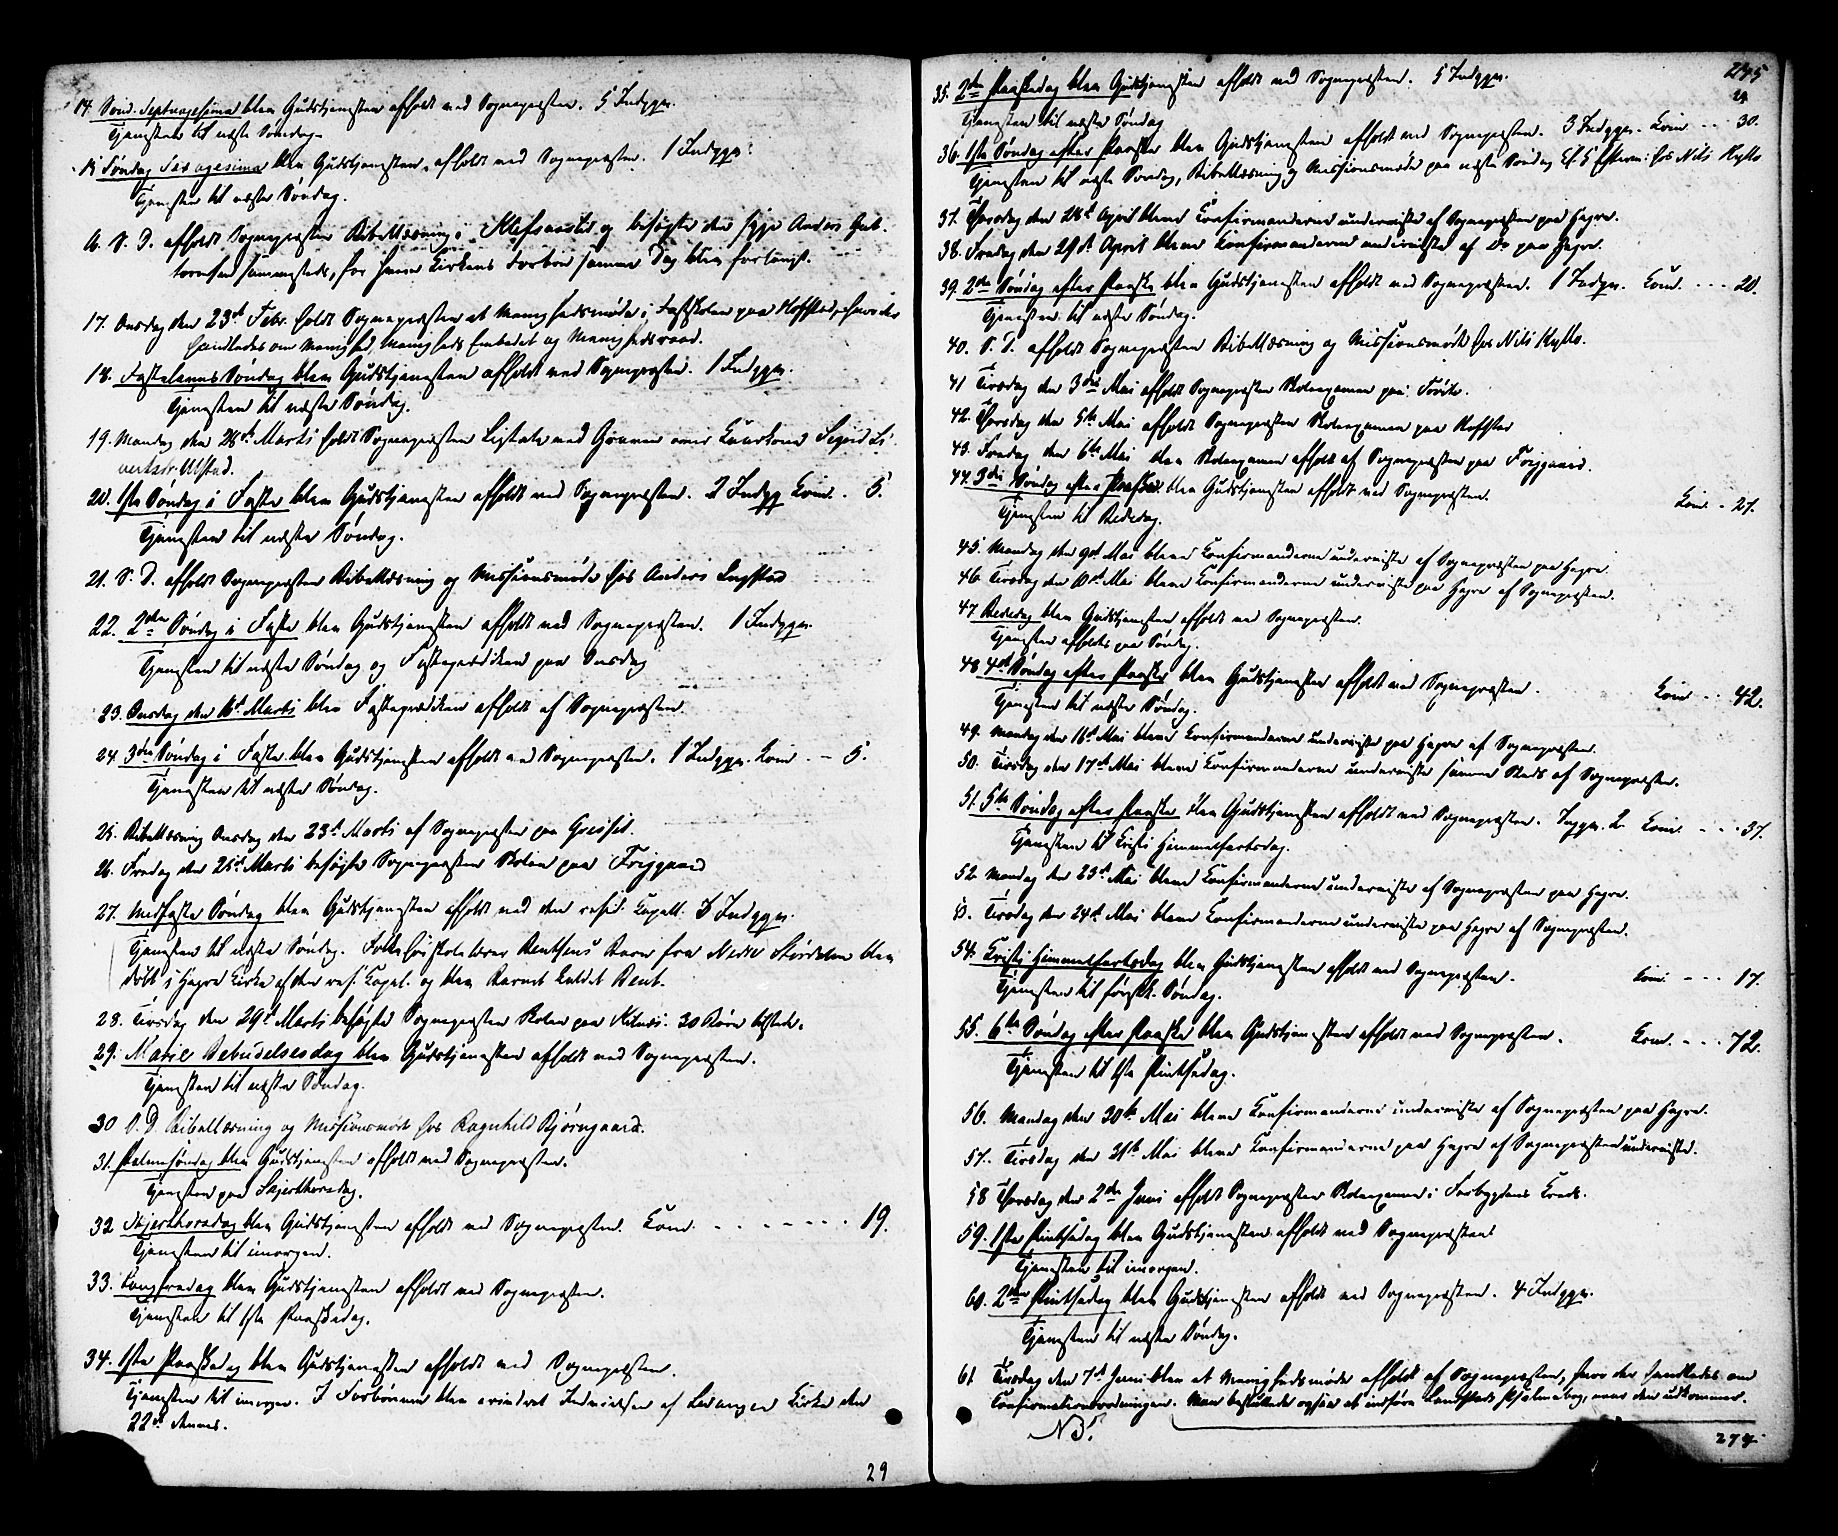 14. Sønd. Septuagesima blev Gudstjenesten afholdt ved Sognepræsten. 5 Indggn.
Tjenesten til næste Søndag.
Søndag Sexagesima blev Gudstjenesten afholdt ved Sognepræsten. 1 Indggn.
Tjenesten til næste Søndag.
S. D. afholdt Sognepræsten Bibellæsning i og besøgte den syge Anders
sammesteds, for hvem Kirkens Forbøn samme Dag blev forlangt.
17. Onsdag den 23de Febr. holdt Sognepræsten et Menighedsmøde i Fastskolen paa Hoffstad, hvor der
handledes om Menighed, Menigheds Embedet og Menighedsraad.
18. Fastelavns Søndag blev Gudstjenesten afholdt ved Sognepræsten. 1 Indggn.
Tjenesten til næste Søndag.
19. Mandag den 28de Marts holdt Sognepræsten Ligtale ved Graven over Sigrid Si-
vertsdr. Ulstad.
20. 1ste Søndag i Faste blev Gudstjenesten afholdt ved Sognepræsten. 2 Indgg Kom. . 5.
Tjenesten til næste Søndag.
21. S. D. afholdt Sognepræsten Bibellæsning og Missionsmøde hos Anders Ingstad
22. 2den Søndag i Faste blev Gudstjenesten afholdt ved Sognepræsten. 1 Indggn.
Tjenesten til næste Søndag og Fasteprædiken paa Onsdag
23. Onsdag den 16de Marts blev Fasteprædiken afholdt af Sognepræsten.
24. 3die Søndag i Faste blev Gudstjenesten afholdt ved Sognepræsten. 1 Indggn. Kom . - 5.
Tjenesten til næste Søndag.
25. Bibellæsning Onsdag den 23de Marts af Sognepræsten paa
26. Fredag den 25de Marts besøgte Sognepræsten Skolen paa Frøygaard
27. Midfaste Søndag blev Gudstjenesten afholdt ved den resid. Kapell. 3 Indggn.
Tjenesten til næste Søndag. Barn fra Nedre Størdalen blev
døbt i Hegre Kirke af den res. Kapel. og blev Barnet kaldet Bent.
28. Tirsdag den 29de Marts besøgte Sognepræsten Skolen paa 30 Børn tilstede.
29. Mariæ Bebudelsesdag blev Gudstjenesten afholdt ved Sognepræsten.
Tjenesten til næste Søndag.
30 S. D. Bibellæsning og Missionsmøde hos Ragnhild Bjørngaard.
31. Palmesøndag blev Gudstjenesten afholdt ved Sognepræsten.
Tjenesten paa Skjærthorsdag.
32. Skjærthorsdag blev Gudstjenesten afholdt ved Sognepræsten. Kom. - - - - - - - 19.
Tjenesten til imorgen.
33. Langfredag blev Gudstjenesten afholdt ved Sognepræsten.
Tjenesten til 1ste Paaskedag.
34. 1ste Paaskedag blev Gudstjenesten afholdt ved Sognepræsten.
Tjenesten til imorgen. I Forbønnen blev erindret Indvielsen af Levanger Kirke den
22de dennes.
29
245
35. 2den Paaskedag blev Gudstjenesten afholdt ved Sognepræsten. 5 Indggn.
Tjenesten til næste Søndag
36. 1ste Søndag efter Paaske blev Gudstjenesten afholdt ved Sognepræsten. 3 Indggn. Kom - - 30.
Tjenesten til næste Søndag, Bibellæsning og Missionsmøde paa næste Søndag Kl. 5 Efterm: hos Nils
37. Thorsdag den 28de April bleve Konfirmanderne underviste af Sognepræsten paa Hegre.
38. Fredag den 29de April bleve Konfirmanderne underviste af Do paa Hegre.
39. 2den Søndag efter Paaske blev Gudstjenesten afholdt ved Sognepræsten. 1 Indggn. Kom. - - - 20.
Tjenesten til næste Søndag.
40. S. D. afholdt Sognepræsten Bibellæsning og Missionsmøde hos Nils
41 Tirsdag den 3die Mai afholdt Sognepræsten Skoleexamen paa
42. Thorsdag den 5te Mai afholdt Sognepræsten Skoleexamen paa Hoffstad
43. Fredag den 6te Mai blev Skoleexamen afholdt af Sognepræsten paa Frøygaard.
44. 3die Søndag efter Paaske blev Gudstjenesten afholdt ved Sognepræsten. Kom. - 27.
Tjenesten til Bededag.
45. Mandag den 9de Mai bleve Konfirmanderne underviste af Sognepræsten paa Hegre.
46. Tirsdag den 10de Mai bleve Konfirmanderne underviste paa Hegre af Sognepræsten.
47. Bededag blev Gudstjenesten afholdt ved Sognepræsten.
Tjenesten afholdes paa Søndag.
48. 4de Søndag efter Paaske blev Gudstjenesten afholdt ved Sognepræsten. Kom - - 42.
Tjenesten til næste Søndag.
49. Mandag den 16de Mai bleve Konfirmanderne underviste paa Hegre af Sognepræsten.
50. Tirsdag den 17de Mai bleve Konfirmanderne underviste samme Steds af Sognepræsten.
51. 5te Søndag efter Paaske blev Gudstjenesten afholdt ved Sognepræsten. Inggn. 2. Kom. - - - 37.
Tjenesten til Kristi Himmelfartsdag.
52. Mandag den 23de Mai bleve Konfirmanderne underviste af Sognepræsten paa Hegre.
53. Tirsdag den 24de Mai bleve Konfirmanderne underviste paa Hegre af Sognepræsten.
54. Kristi Himmelfartsdag blev Gudstjenesten afholdt ved Sognepræsten. Kom. - - - 17.
Tjenesten til førstk. Søndag.
55. 6te Søndag efter Paaske blev Gudstjenesten afholdt ved Sognepræsten. Kom. - - - 72.
Tjenesten til 1ste Pintsedag.
56. Mandag den 30te Mai bleve Konfirmanderne underviste af Sognepræsten paa Hegre.
57. Tirsdag den 31te Mai bleve Konfirmanderne paa Hegre af Sognepræsten underviste.
58 Thorsdag den 2den Juni afholdt Sognepræsten Skoleexamen i Forbygdens Kreds.
59. 1ste Pintsedag blev Gudstjenesten afholdt ved Sognepræsten.
Tjenesten til imorgen.
60. 2den Pintsedag blev Gudstjenesten afholdt ved Sognepræsten. 4 Indggn.
Tjenesten til næste Søndag.
61. Tirsdag den 7de Juni blev et Menighedsmøde afholdt af Sognepræsten, hvor der handledes om
Confirmationsordningen. Man besluttede ogsaa at indføre Landstads Psalmebog, naar den udkommer.
NB.
274